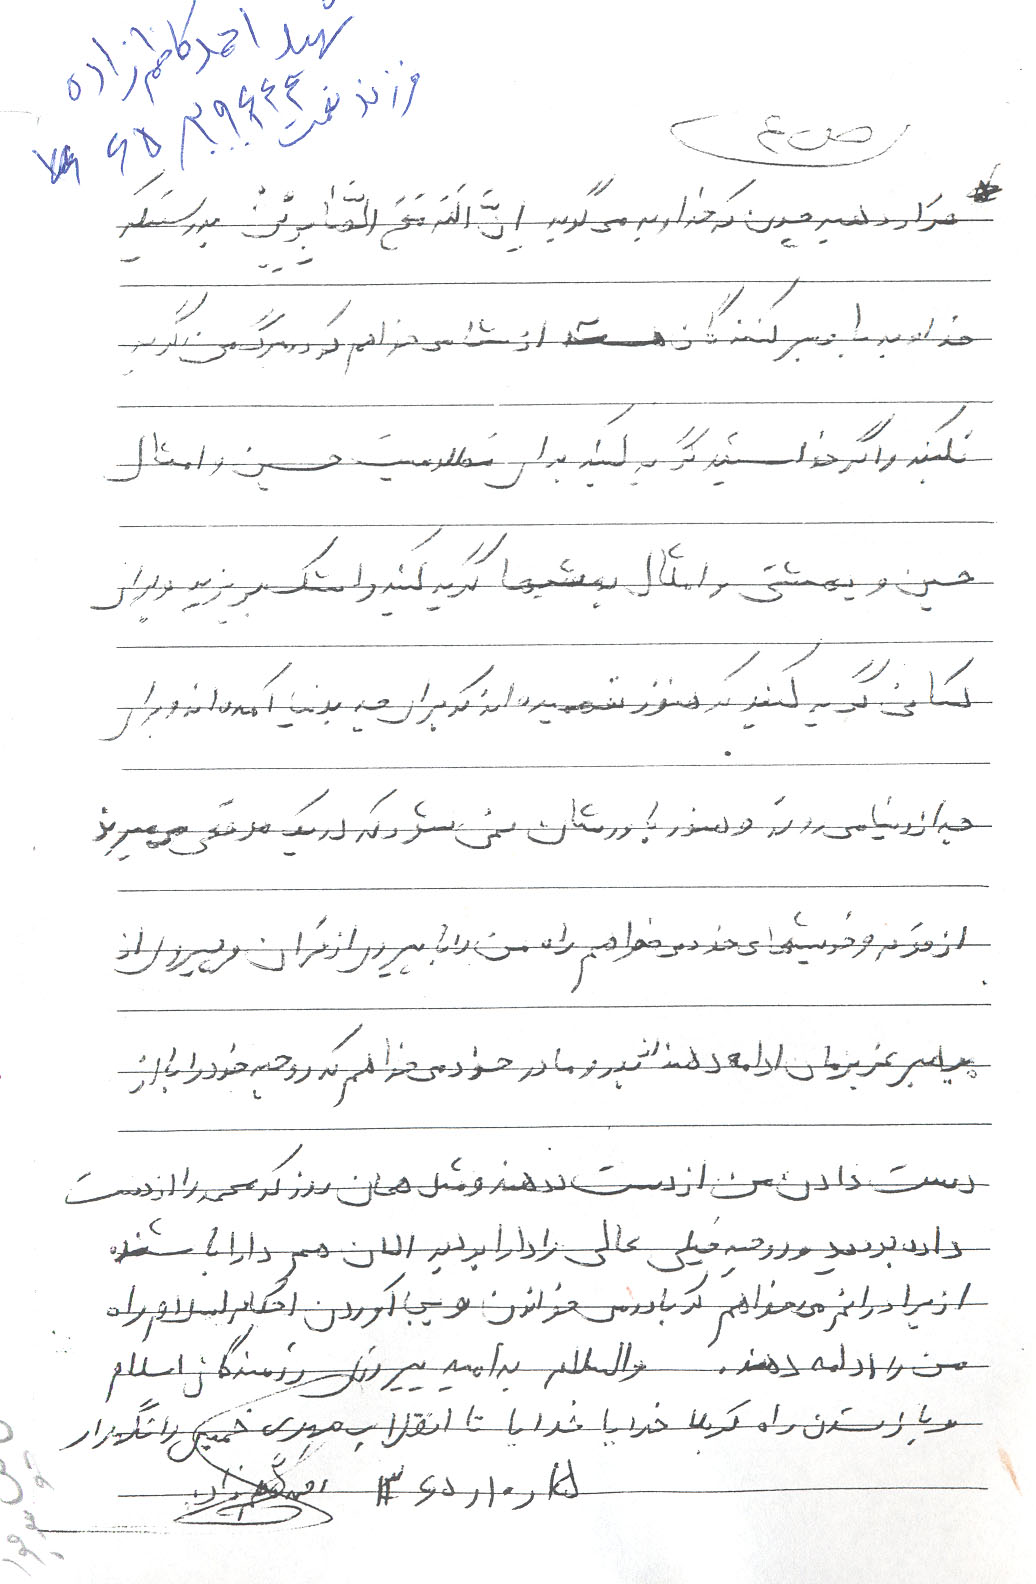 شهید احمد کاظم زاده
فرزند نعمت
ص ۴
قرار دهید چون که خداوند می گوید اِنَّ اللّهَ مَعَ الصّابِرینْ بدرستیکه
خداوند با صبر کنندگان هست از شما می خواهم که در مرگ من گریه
نکنید و اگر خواستید گریه کنید برای مظلومیت حسین و امثال
حسین و بهشتی و امثال بهشتیها گریه کنید و اشک بریزید و برای
کسانی گریه کنید که هنوز نفهمیده اند که برای چه بدنیا آمده اند و برای
چه از دنیا می روند و هنوز باورشان نمی شود که در یک موقعی می میرند
از قوم و خویشهای خود می خواهم راه من را با پیروی از قرآن و پیروی از
پیامبر عزیزمان ادامه دهند از پدر و مادر خود می خواهم که روحیه خود را با از
دست دادن من از دست ندهند و مثل همان روز که محمد را از دست
داده بودید و روحیه خیلی عالی را دارا بودید الان هم دارا باشید
از برادرانم می خواهم که با درس خواندن و بجا آوردن احکام اسلام راه
من را ادامه دهند. والسلام به امید پیروزی رزمندگان اسلام
و باز شدن راه کربلا خدایا خدایا تا انقلاب مهدی خمینی را نگهدار
احمد کاظم زاده